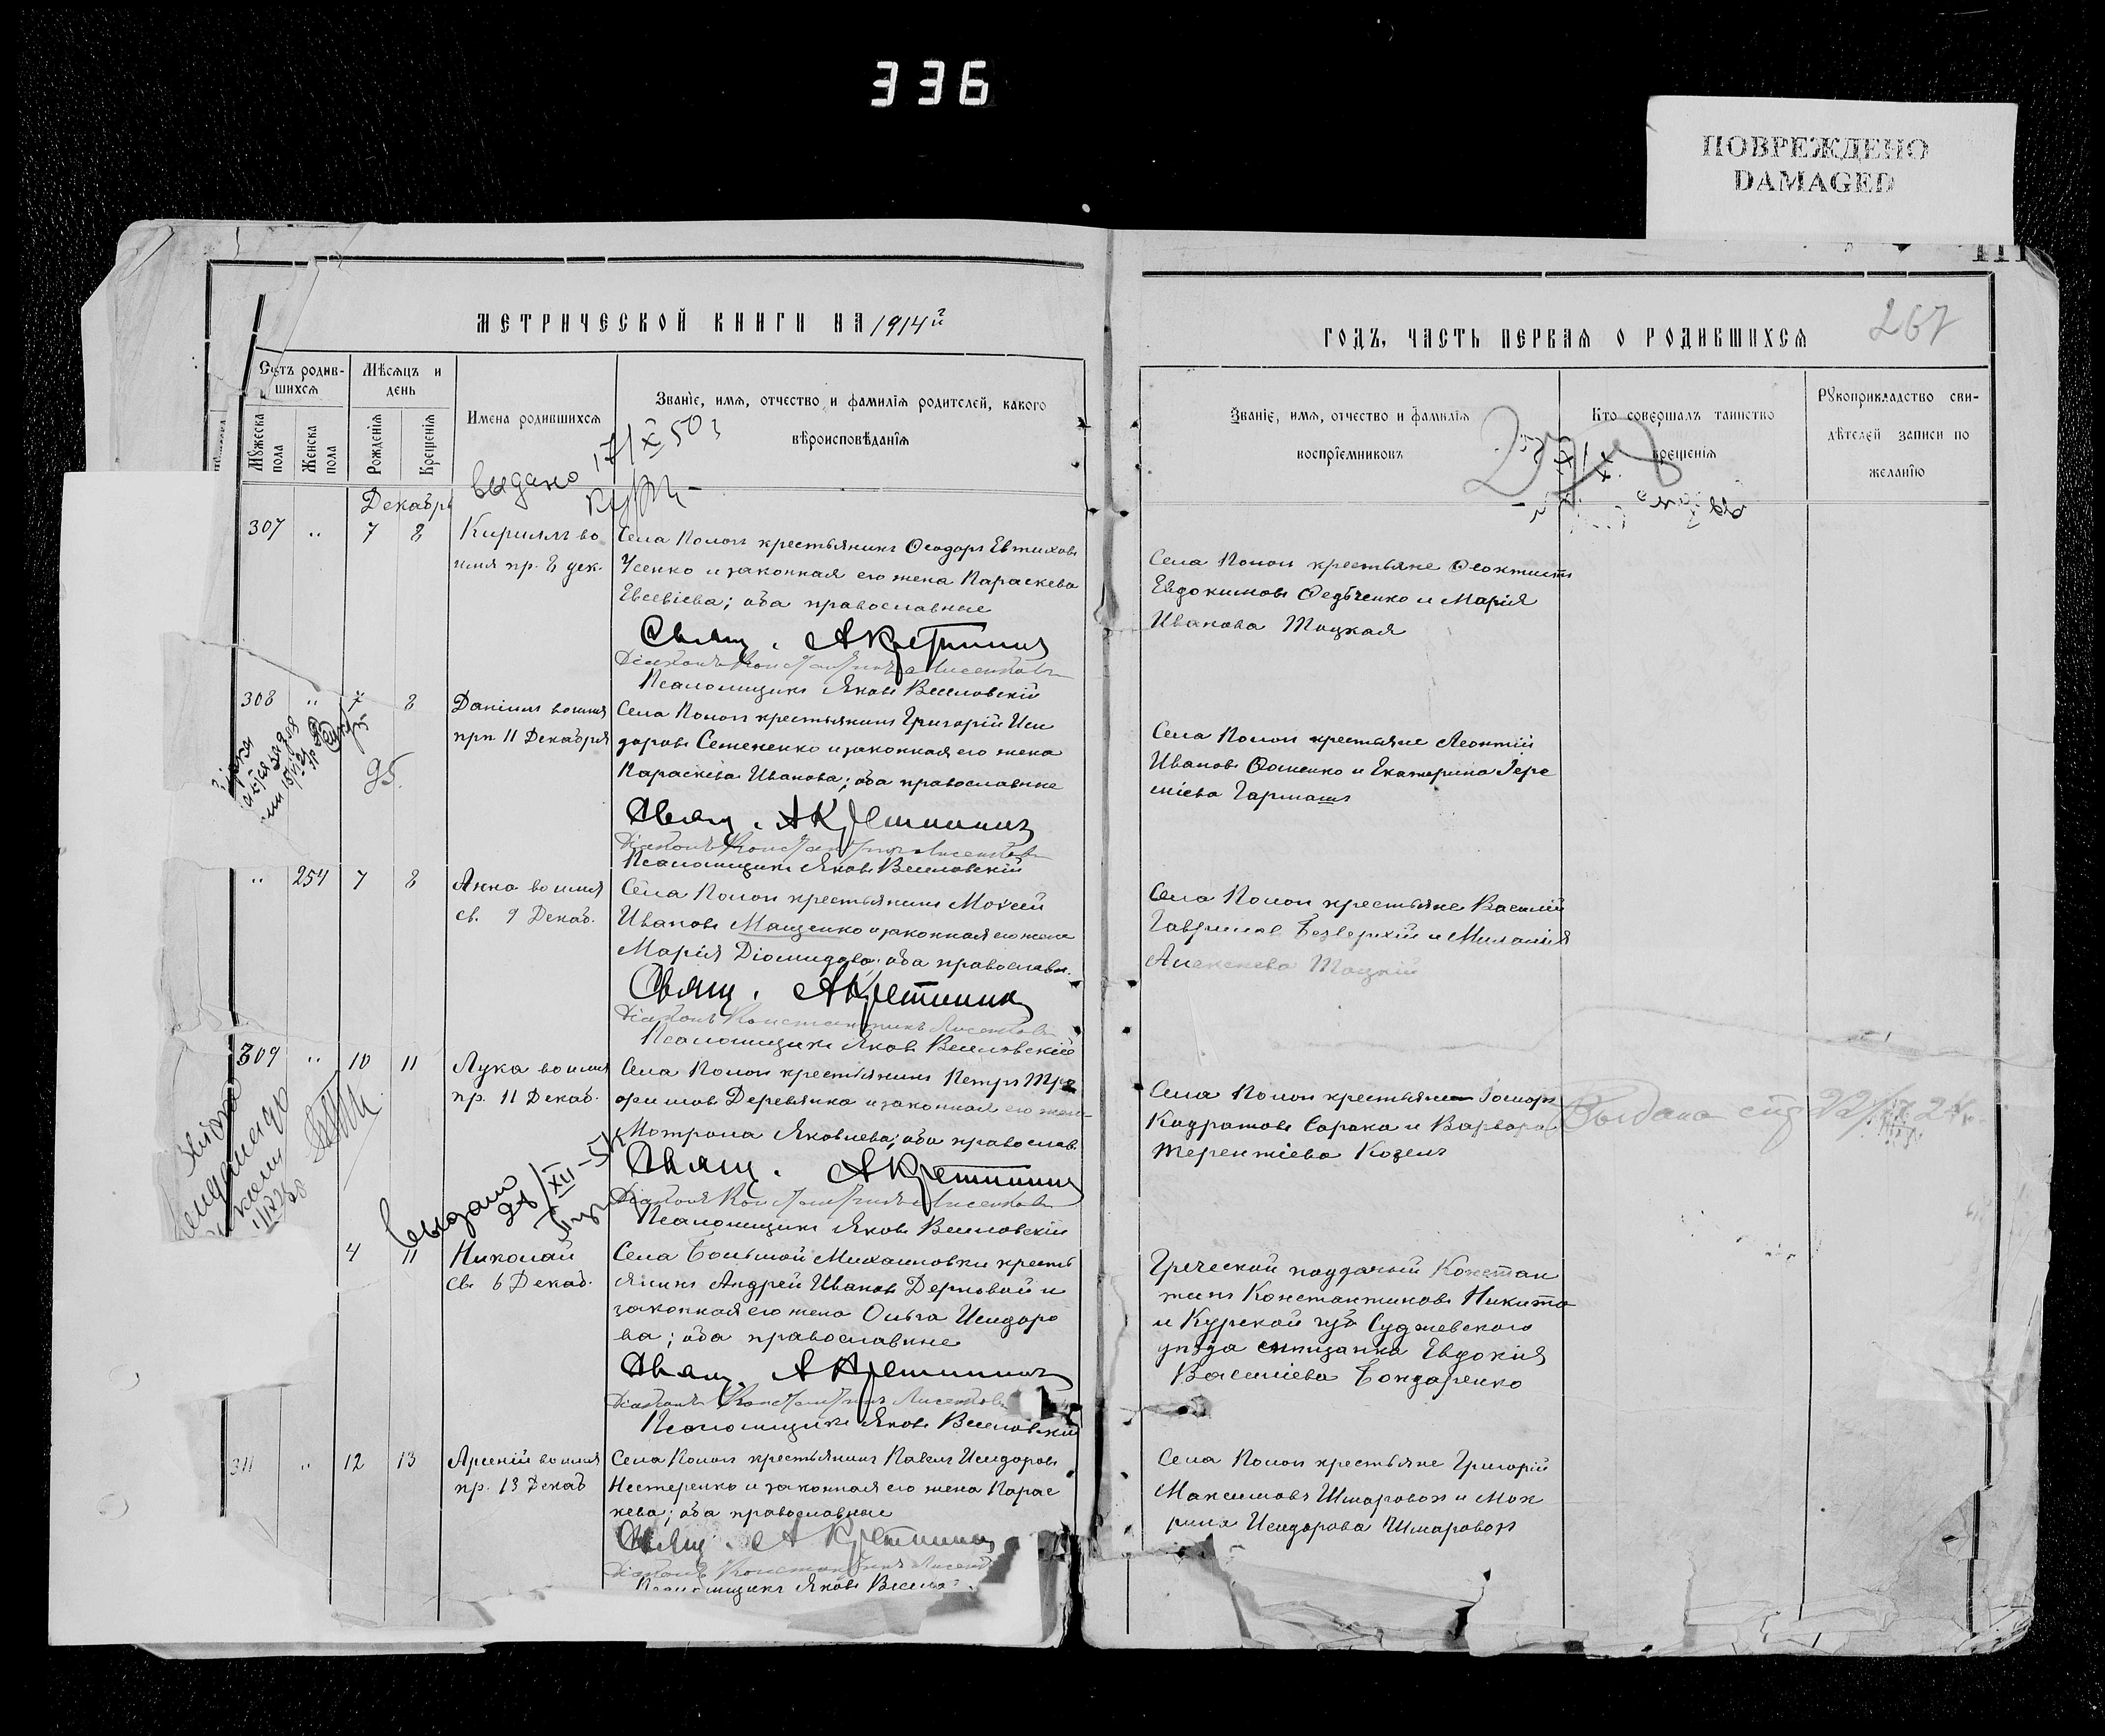 336
ПОВРЕЖДЕНО
DAMAGED
МЕТРИЧЕСКОЙ КНИГИ НА 1914й
ГОДЪ, ЧАСТЬ ПЕРВАЯ О РОДИВШИХСЯ
267
Счетъ родив-
шихся
Мѣсяцъ и
день
Мужеска
пола
Женска
пола
Рожденія
Крещенія
Имена родившихся
Званіе, имя, отчество и фамилія родителей, какого
вѣроисповѣданія
Званіе, имя, отчество и фамилія
воспріемниковъ
Кто совершалъ таинство
крещенія
Рукоприкладство сви-
дѣтелей записи по
желанію
выдано 17/X 50
Декабрь
307 " 7 8 Кириллъ во
имя пр. 8 дек.
Села Полог крестьянинъ Ѳеодоръ Евтиховъ
Усенко и законная его жена Параскева
Евсевіева; оба православные
Свящ. А Кретинин
Діаконъ Константинъ Лисенков
Псаломщикъ Яковъ Веселовскій
Села Полог крестьяне Ѳеоктистъ
Евдокимовъ Федьченко и Марія
Иванова Тоцкая
308 " 7 8 Даніилъ во имя
прп 11 Декабря
95.
Села Полог крестьянинъ Григорій Иси
доровъ Семененко и законная его жена
Параскева Иванова; оба православные
Свящ. А Кретинин
Діаконъ Константинъ Лисенков
Псаломщикъ Яковъ Веселовскій
Села Полог крестьяне Леонтій
Ивановъ Фоменко и Екатерина Іере
міева Гармаш
" 254 7 8 Анна во имя
св. 9 Декаб.
Села Полог крестьянинъ Моѵсей
Ивановъ Мащенко и законная его жена
Марія Діомидова; оба православн.
Свящ. А Кретинин
Діаконъ Константинъ Лисенков
Псаломщикъ Яковъ Веселовскій
Села Полог крестьяне Василій
Гавриловъ Безверхій и Миланія
Алексеева Тоцкій
309 " 10 11 Лука во имя
пр. 11 Декаб.
Села Полог крестьянинъ Петръ Тро
фимовъ Деревянка и законная его жена
Мотрона Яковлева; оба православ.
Свящ. А Кретинин
Діаконъ Константинъ Лисенков
Псаломщикъ Яковъ Веселовскій
Села Полог крестьяне
Кодратовъ Сорока и Варвара
Терентіева Козел
Выдана
выдано
28/XII-51
4 11 Николай
св. 6 Декаб.
Села Большой Михайловки кресть
янинъ Андрей Ивановъ Дерновой и
законная его жена Ольга Исидоро
ва; оба православные
Свящ. А Кретинин
Діаконъ Константинъ Лисенков
Псаломщикъ Яковъ Веселовскій
Греческой подданый Констан
тинъ Константиновъ Никита
и Курской губ Суджевского
уезда Евдокія
Василіева Бондаренко
311 " 12 13 Арсеній во имя
пр. 13 Декаб
Села Полог крестьянинъ Павелъ Исидоровъ
Нестеренко и законная его жена Парас
кева; оба православные
Свящ. А Кретинин
Діаконъ Константинъ
Псаломщикъ Яковъ
Села Полог крестьяне Григорій
Максимовъ Шмаровоз и Мок
рина Исидорова Шмаровоз